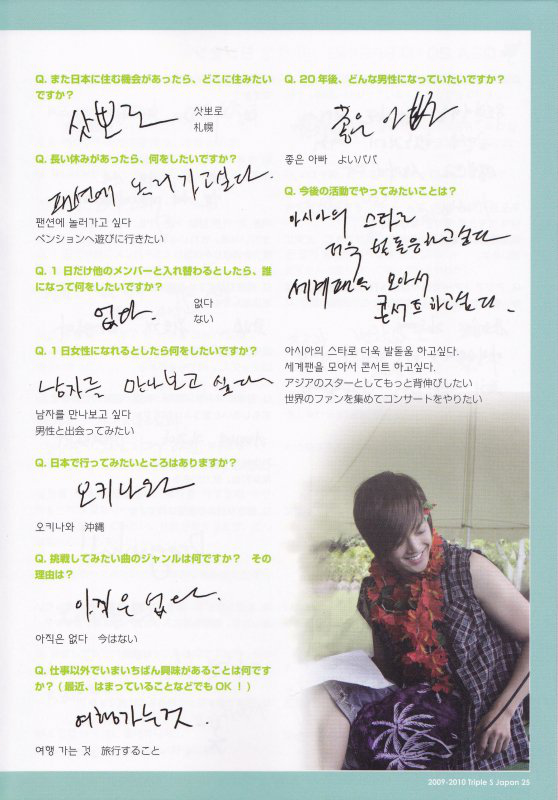 Q. また日本に住む機会があったら、どこに住みたい
ですか？
삿뽀로
삿뽀로
札幌
Q. 長い休みがあったら、何をしたいですか？
팬션에 놀러가고싶다.
팬션에 놀러가고 싶다
ペンションへ遊びに行きたい
Q. 1 日だけ他のメンバーと入れ替わるとしたら、誰
になって何をしたいですか？
없다.
없다
ない
Q. 1 日女性になれるとしたら何をしたいですか？
남자를 만나보고 싶다
남자를 만나보고 싶다
男性と出会ってみたい
Q. 日本で行ってみたいところはありますか？
오키나와
오키나와 沖縄
Q. 挑戦してみたい曲のジャンルは何ですか？ その
理由は？
아직은 없다.
아직은 없다 今はない
Q. 仕事以外でいまいちばん興味があることは何です
か？(最近、はまっていることなどでもOK！)
여행가는것.
여행 가는 것 旅行すること
Q. 20 年後、どんな男性になっていたいですか？
좋은 아빠
좋은 아빠 よいパパ
Q. 今後の活動でやってみたいことは？
아시아의 스타로
더욱 발돋움하고싶다
세계팬을 모아서
콘서트 하고싶다.
아시아의 스타로 더욱 발돋움 하고싶다.
세계팬을 모아서 콘서트 하고싶다.
アジアのスターとしてもっと背伸びしたい
世界のファンを集めてコンサートをやりたい
2009-2010 Triple S Japan 25